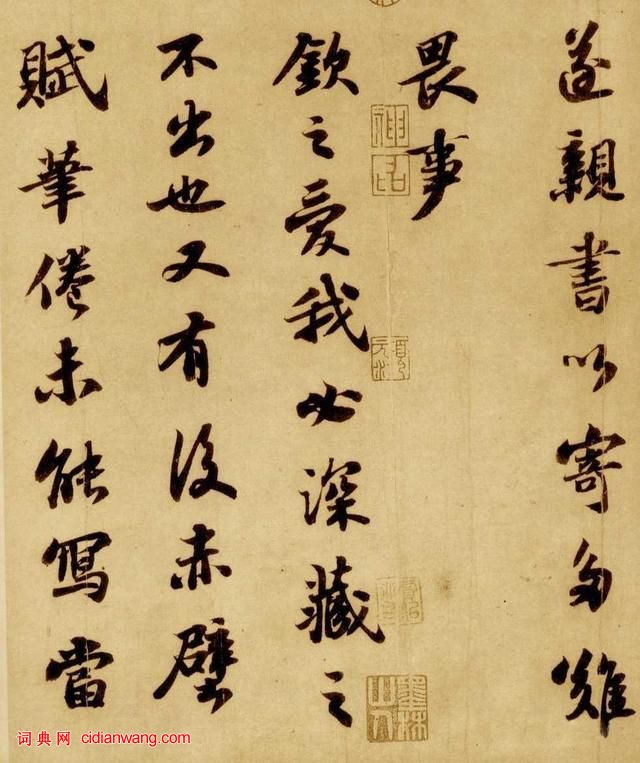 遂親書以寄多難
畏事
欽之愛我必深藏之
不出也又有後赤壁
賦筆倦未能寫當
神品
墨林
詞典网 cidianwang.com